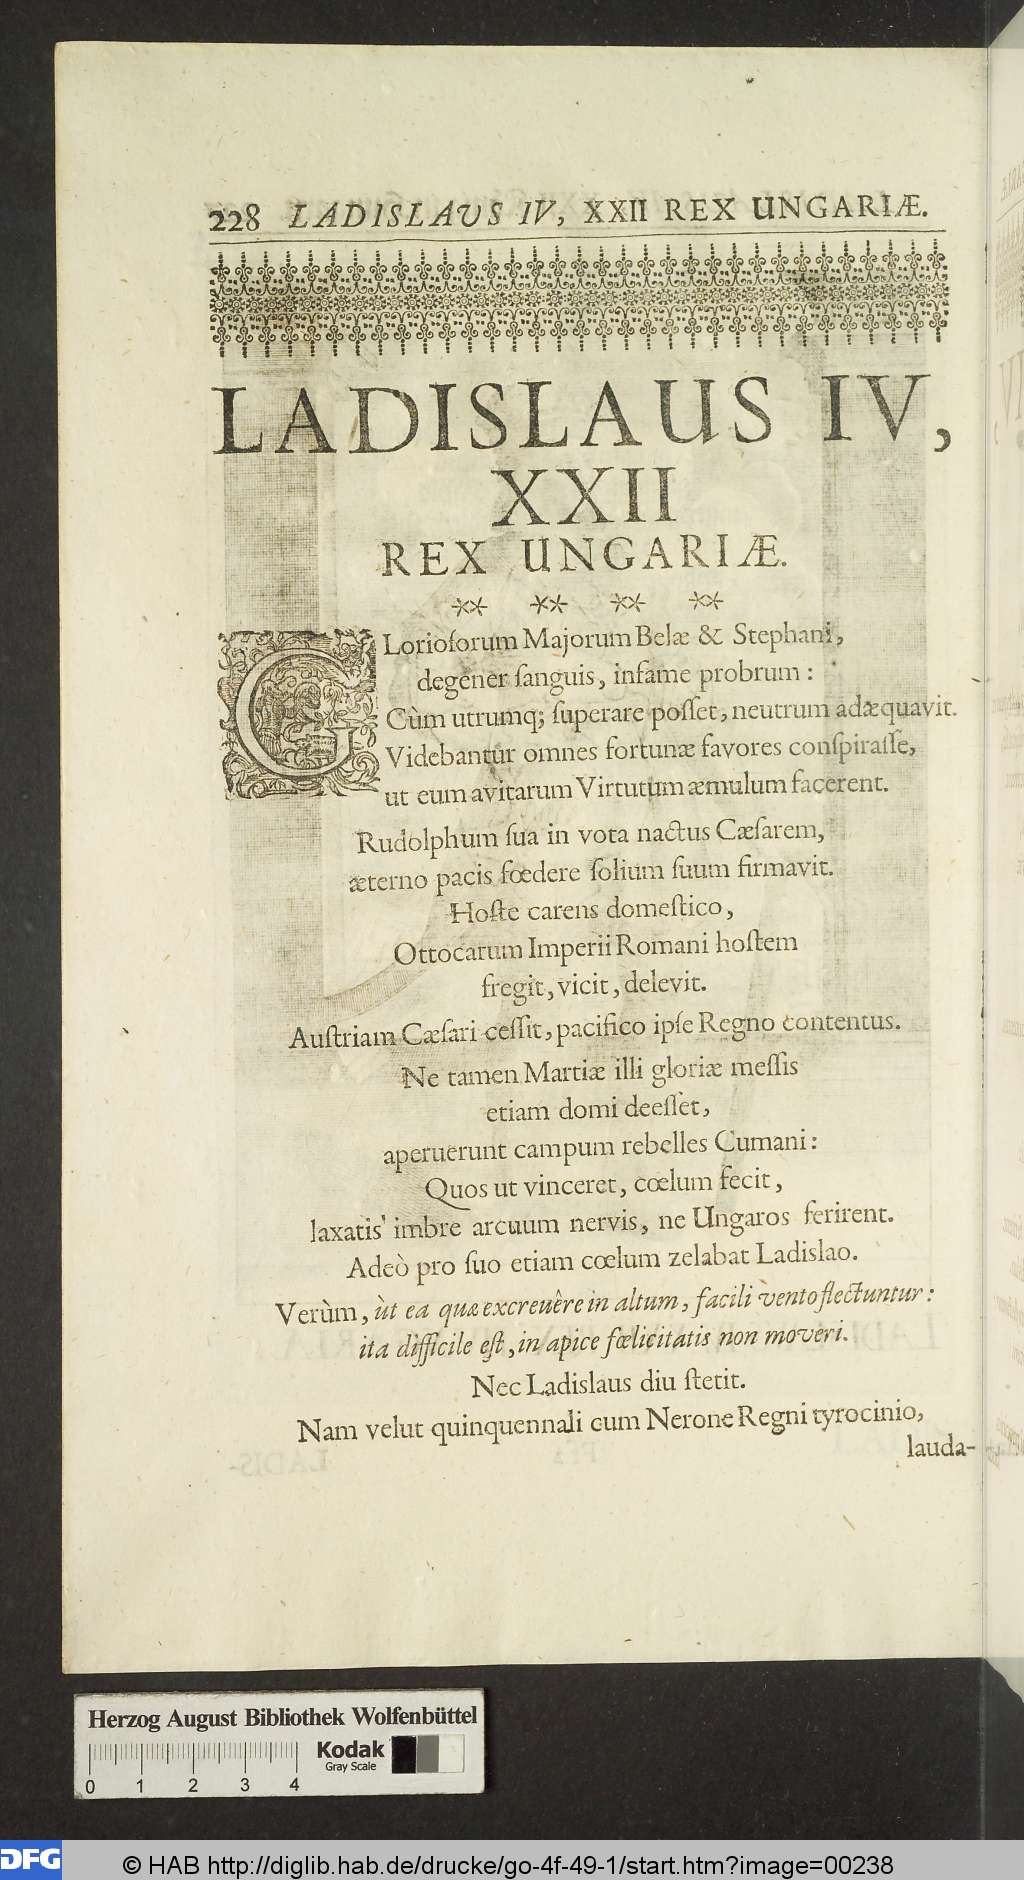 228 LADISLAUS IV, XXII REX UNGARIÆ.
LADISLAUS IV,
XXII
REX UNGARIÆ.
** ** ** **
Glorioſorum Majorum Belæ & Stephani,
degener ſanguis, infame probrum:
Cùm utrumq; ſuperare poſſet, neutrum adæquavit.
Videbantur omnes fortunæ favores conſpiraſſe,
ut eum avitarum Virtutum æmulum facerent.
Rudolphum ſua in vota nactus Cæſarem,
æterno pacis fœdere ſolium ſuum firmavit.
Hoſte carens domeſtico,
Ottocarum Imperii Romani hoſtem
fregit, vicit, delevit.
Auſtriam Cæſari ceſſit, pacifico ipſe Regno contentus.
Ne tamen Martiæ illi gloriæ meſſis
etiam domi deeſſet,
aperuerunt campum rebelles Cumani:
Quos ut vinceret, cœlum fecit,
laxatis imbre arcuum nervis, ne Ungaros ferirent.
Adeò pro ſuo etiam cœlum zelabat Ladislao.
Verùm, ùt ea quæ excreuêre in altum, facili vento flectuntur:
ita difficile eſt, in apice fœlicitatis non moveri.
Nec Ladislaus diu ſtetit.
Nam velut quinquennali cum Nerone Regni tyrocinio,
lauda-
Herzog August Bibliothek Wolfenbüttel
Kodak
Gray Scale
0 1 2 3 4
DFG © HAB http://diglib.hab.de/drucke/go-4f-49-1/start.htm?image=00238